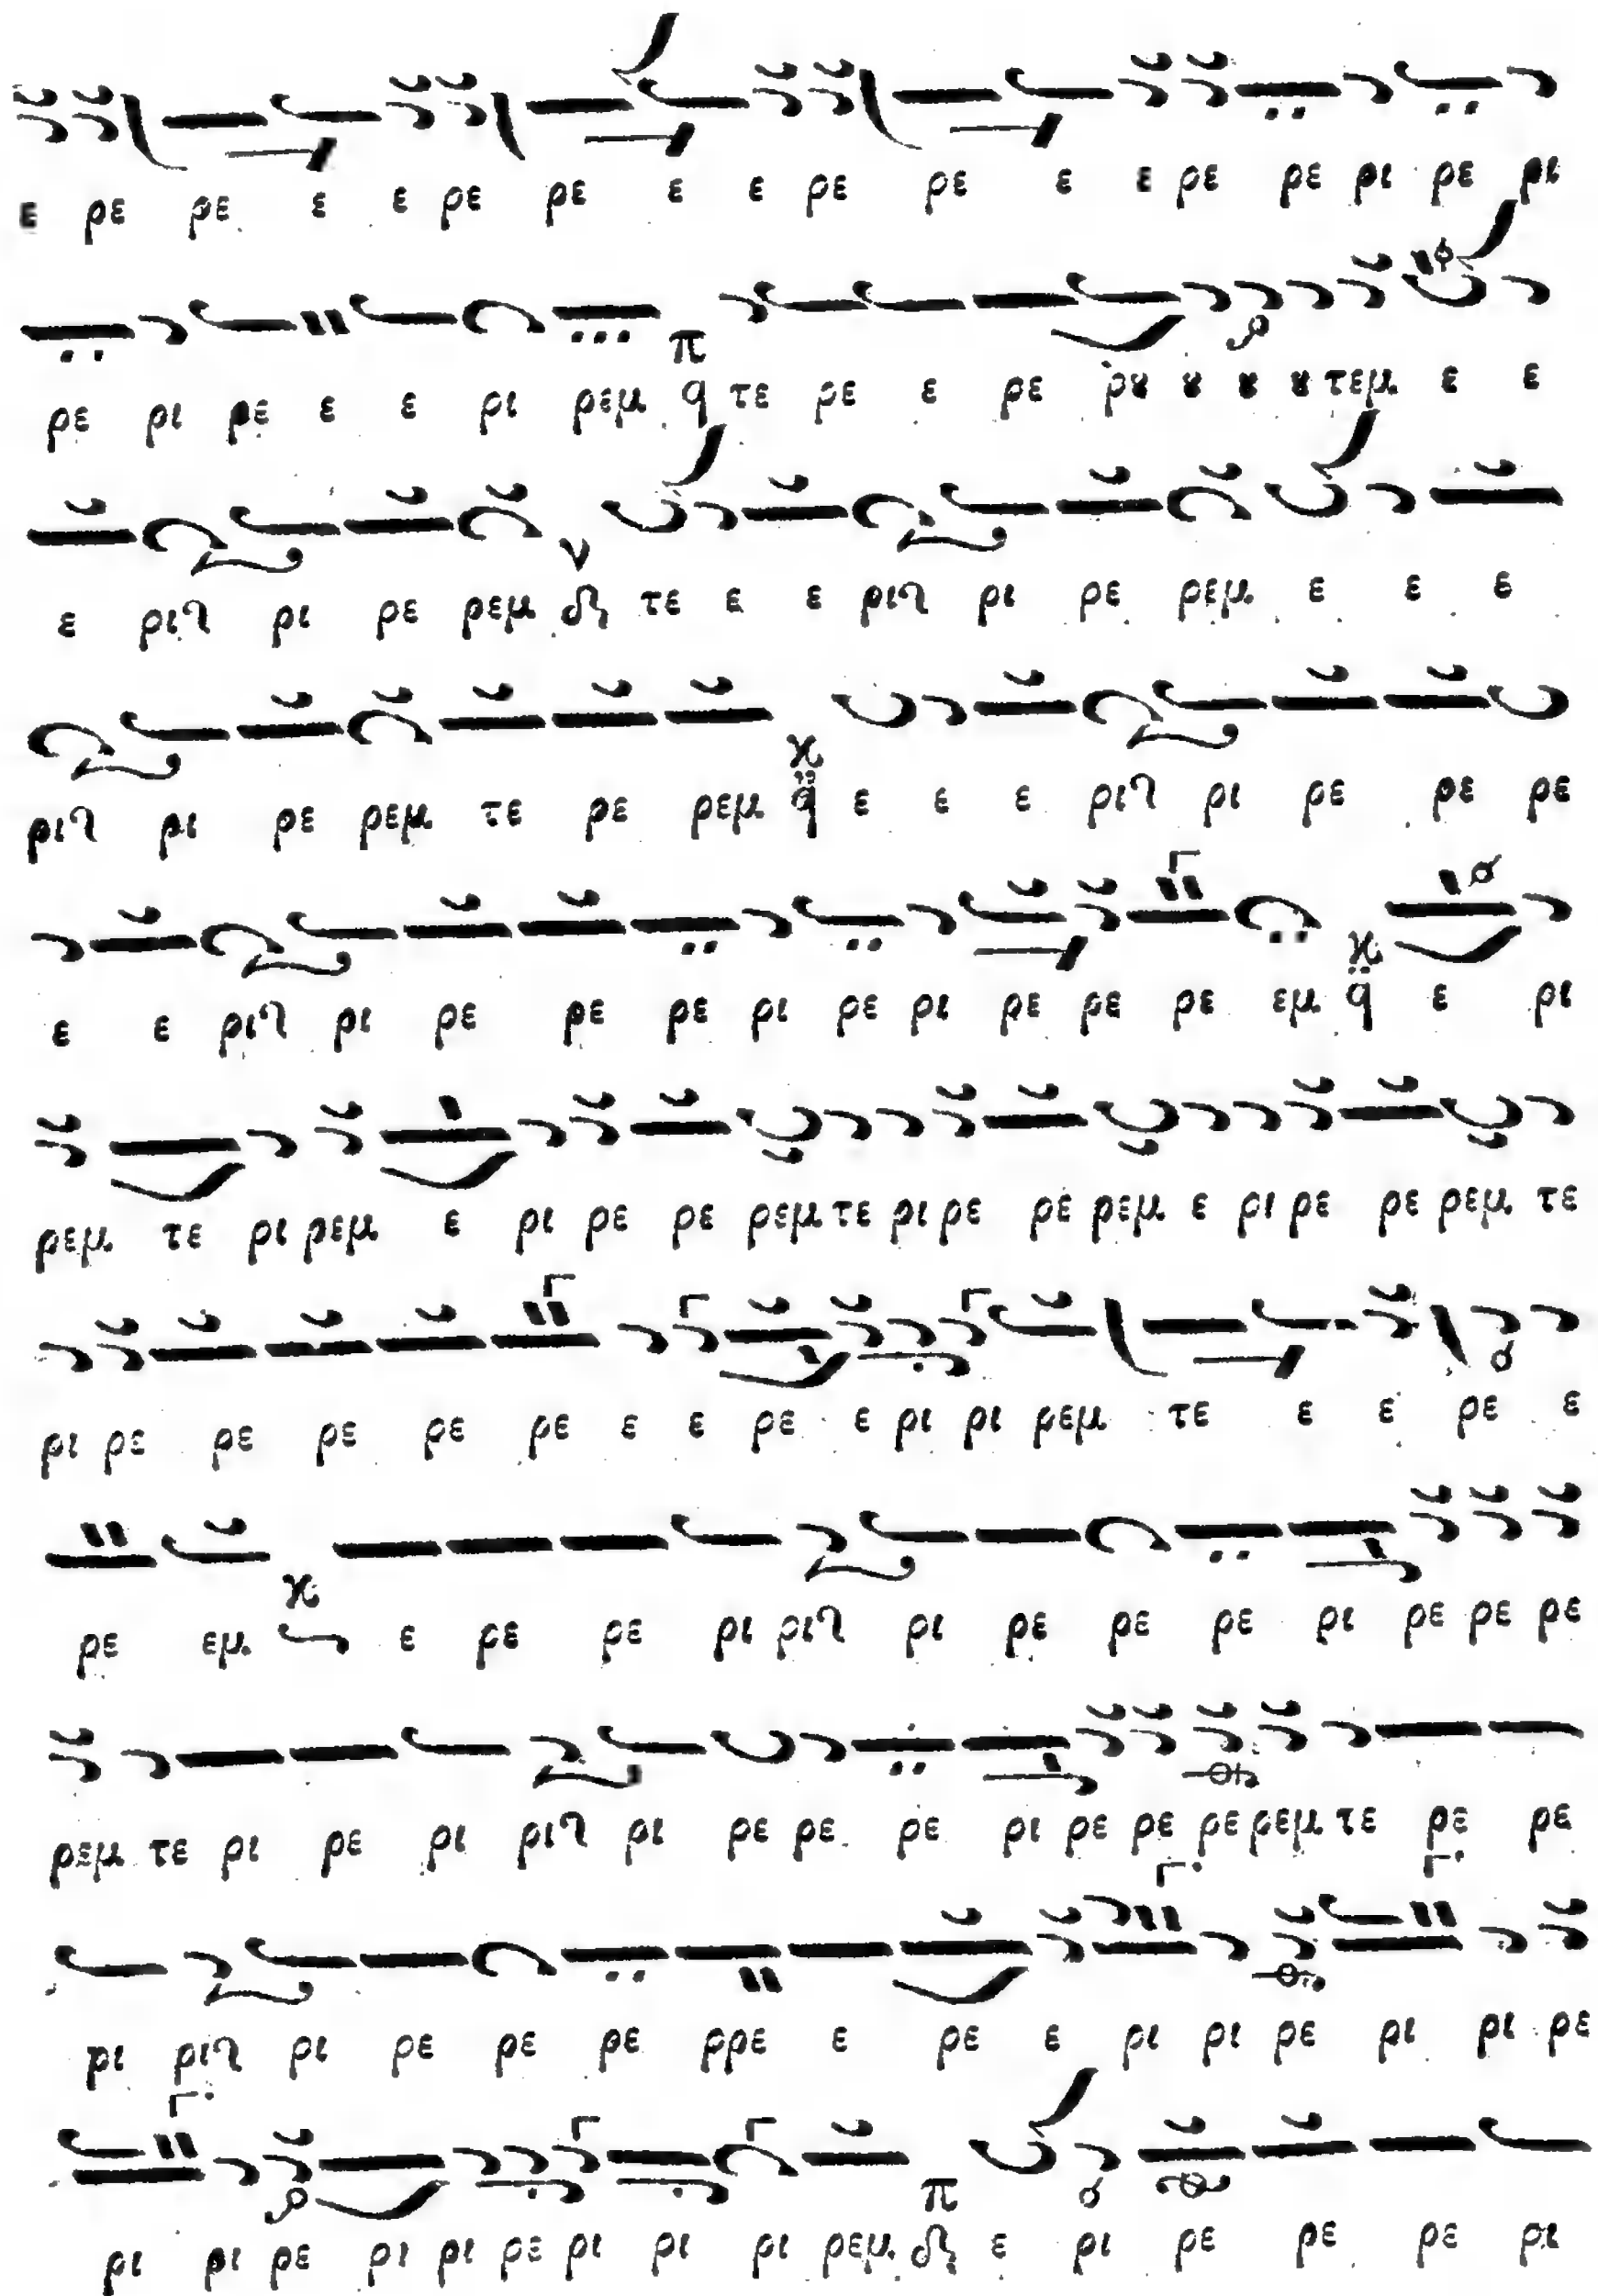 ε ρε ρε ε ε ρε ρε ε ε ρε ρε ε ε ρε ρε ρι ρε ρι
ρε ρι ρε ε ε ρι ρεμ π q τε ρε ε ρε ρȣ ȣ ȣ ȣ τεμ ε ε
ε ριϟ ρι ρε ρεμ ν τε ε ε ριϟ ρι ρε ρεμ ε ε ε
ριϟ ρι ρε ρεμ τε ρε ρεμ ϗ q ε ε ε ριϟ ρι ρε ρε ρε
ε ε ριϟ ρι ρε ρε ρε ρι ρε ρι ρε ρε ρε εμ ϗ q ε ρι
ρεμ τε ρι ρεμ ε ρι ρε ρε ρεμ τε ρι ρε ρε ρεμ ε ρι ρε ρε ρεμ τε
ρι ρε ρε ρε ρε ρε ε ε ρε ε ρι ρι ρεμ τε ε ε ρε ε
ρε εμ ϗ ε ρε ρε ρι ριϟ ρι ρε ρε ρε ρι ρε ρε ρε
ρεμ τε ρι ρε ρι ριϟ ρι ρε ρε ρε ρι ρε ρε ρε ρεμ τε ρε ρε
ρι ριϟ ρι ρε ρε ρε ρρε ε ρε ε ρι ρι ρε ρι ρι ρε
ρι ρι ρε ρι ρι ρε ρι ρι ρι ρεμ π ε ρι ρε ρε ρε ρι